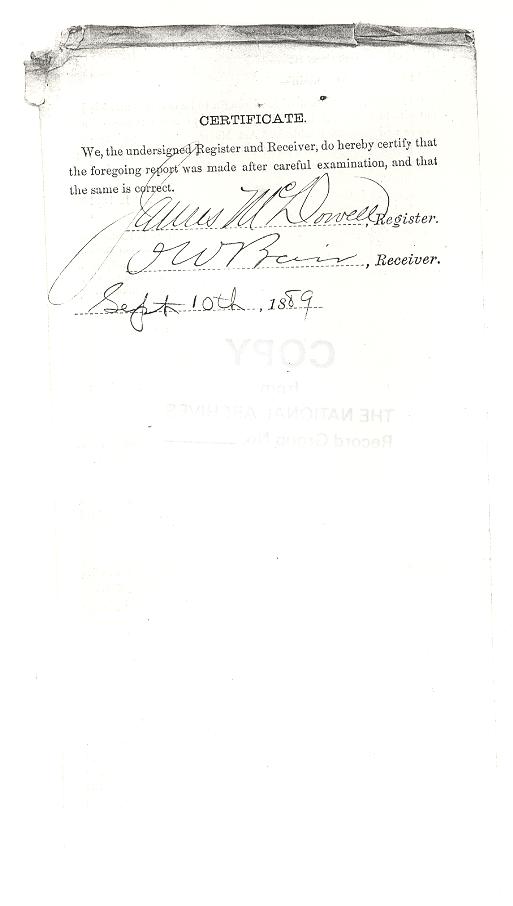 CERTIFICATE.
We, the undersigned Register and Receiver, do hereby certify that
the foregoing report was made after careful examination, and that
the same is correct.
James McDowell, Register.
, Receiver.
Sept 10th, 1889
COPY
from
THE NATIONAL ARCHIVES
Record Group No.